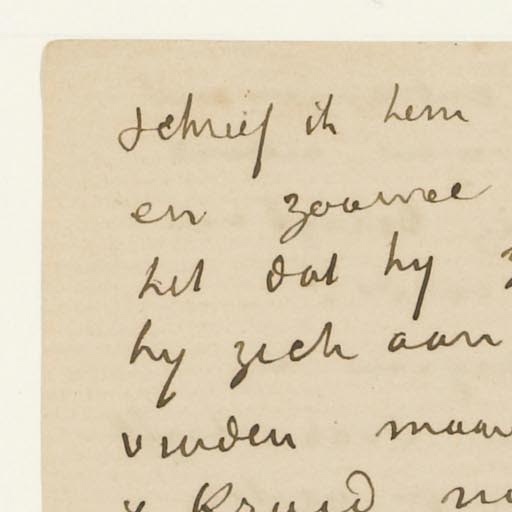 schreef ik hem
en zoowee
het dat hy
hy zich aan
vinden maar
& Kruid